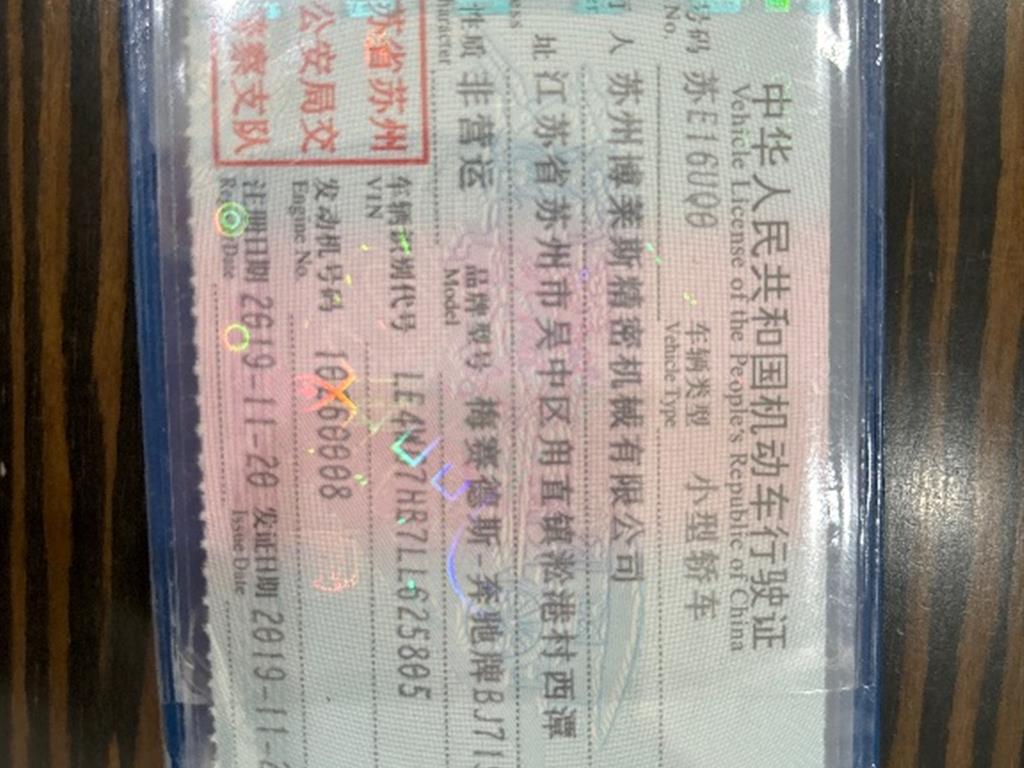 中华人民共和国机动车行驶证
Vehicle License of the People's Republic of China
号码 苏E16UQ0 车辆类型 小型轿车
No. Vehicle Type
人 苏州博莱斯精密机械有限公司
址 江苏省苏州市吴中区甪直镇淞港村西潭
性质 非营运 品牌型号 梅赛德斯-奔驰牌BJ71
Model
苏省苏州
公安局交
警察支队
车辆识别代号 LE4WG7HB7LL625805
VIN
发动机号码 10260008
Engine No.
注册日期 2019-11-20 发证日期 2019-11-
Date Issue Date